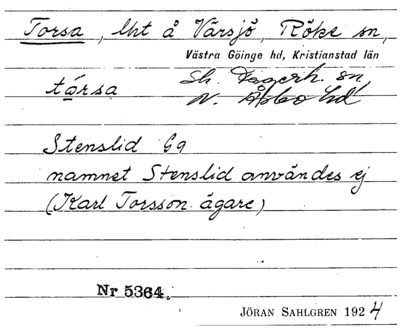 Torsa, lht å Värsjö, Röke sn,
Västra Göinge hd, Kristianstad län
tå̱rsa Sk. Fagerh. sn
N. Åsbo hd
Stenslid 6q
namnet Stenslid användes ej
(Karl Torsson ägare)
Nr 5364.
JÖRAN SAHLGREN 1924